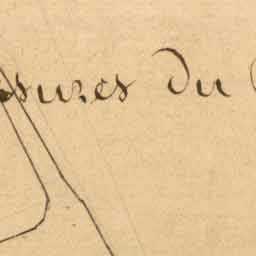 sures du